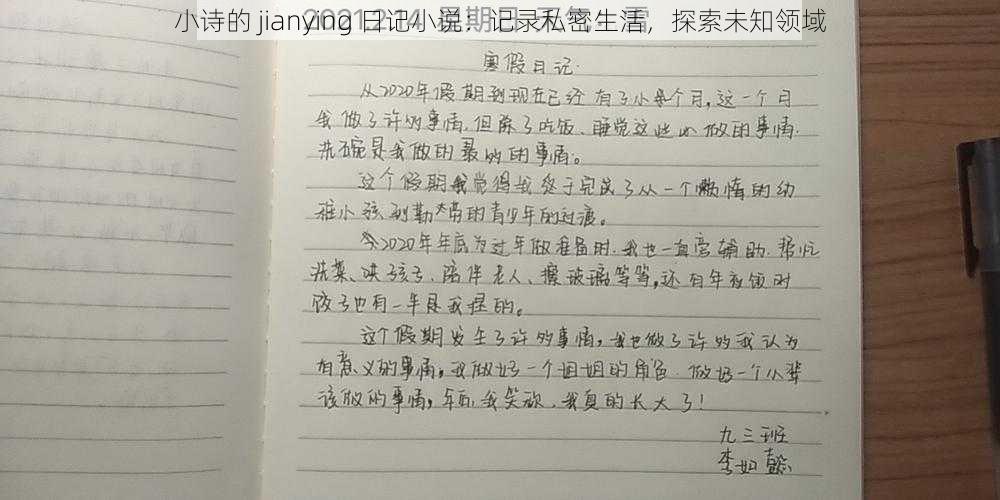 小诗的 jianying 日记小说：记录私密生活，探索未知领域
寒假日记
从2020年假期到现在已经有了小半个月，这一个月
我做了许多事情，但除了吃饭、睡觉这些必做的事情
洗碗是我做的最多的事情。
这个假期我觉得我终于完成了从一个懒惰的幼
稚小孩到勤劳的青少年的过渡。
今2020年年底为过年做准备时，我也一直当辅助，帮忙
洗菜、哄孩子、陪伴老人、擦玻璃等等，还有年夜饭时
饺子也有一半是我捏的。
这个假期发生了许多事情，我也做了许多我认为
有意义的事情，我做好一个姐姐的角色，做好一个小辈
该做的事情，年夜，我笑欢，我真的长大了！
九三班
李如